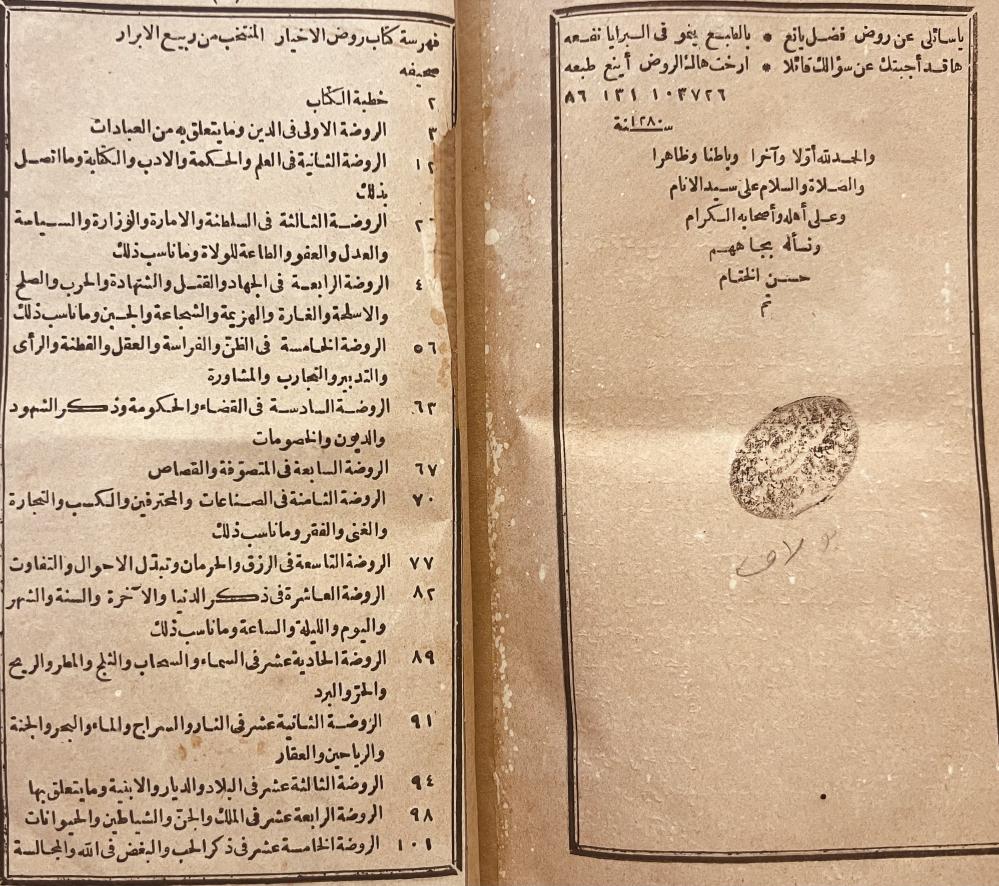 ياسائلى عن روض فضل يانع * بالطبع ينمو فى البرايا نفعه
ها قد أجبتك عن سؤالك قائلا * ارخت هالة الروض أينع طبعه
١٠٣٧٢٦ ١٣١ ٨٦
سنة ١٢٨٠
والحمدلله أولا وآخرا وباطنا وظاهرا
والصلاة والسلام على سيد الانام
وعلى أهله وأصحابه الكرام
ونسأله بجاههم
حسن الختام
تم
فهرسة كتاب روض الاخيار المنتخب من ربيع الابرار
صحيفه
٢ خطبة الكتاب
٣ الروضة الاولى فى الدين وما يتعلق به من العبادات
١٢ الروضة الثانية فى العلم والحكمة والادب والكتابة وما اتصل
بذلك
الروضة الثالثة فى السلطنة والامارة والوزارة والسياسة
والعدل والعفو والطاعة للولاة وما ناسب ذلك
الروضة الرابعة فى الجهاد والقتل والشهادة والحرب والصلح
والاسلحة والغارة والهزيمة والشجاعة والجبن وما ناسب ذلك
٥٦ الروضة الخامسة فى الظنّ والفراسة والعقل والفطنة والرأى
والتدبير والتجارب والمشاورة
٦٣ الروضة السادسة فى القضاء والحكومة وذكر الشهود
والديون والخصومات
٦٧ الروضة السابعة فى المتصوّفة والقصاص
٧٠ الروضة الثامنة فى الصناعات والمحترفين والكسب والتجارة
والغنى والفقر وما ناسب ذلك
٧٧ الروضة التاسعة فى الرزق والحرمان وتبدّل الاحوال والتفاوت
٨٢ الروضة العاشرة فى ذكر الدنيا والآخرة والسنة والشهر
واليوم والليلة والساعة وما ناسب ذلك
٨٩ الروضة الحادية عشر فى السماء والسحاب والثلج والمطر والريح
والحرّ والبرد
٩١ الروضة الثانية عشر فى النار والسراج والماء والبحر والجنة
والرياحين والعقار
٩٤ الروضة الثالثة عشر فى البلاد والديار والابنية وما يتعلق بها
٩٨ الروضة الرابعة عشر فى الملك والجنّ والشياطين والحيوانات
١٠١ الروضة الخامسة عشر فى ذكر الحب والبغض فى الله والمجالسة
بولاق